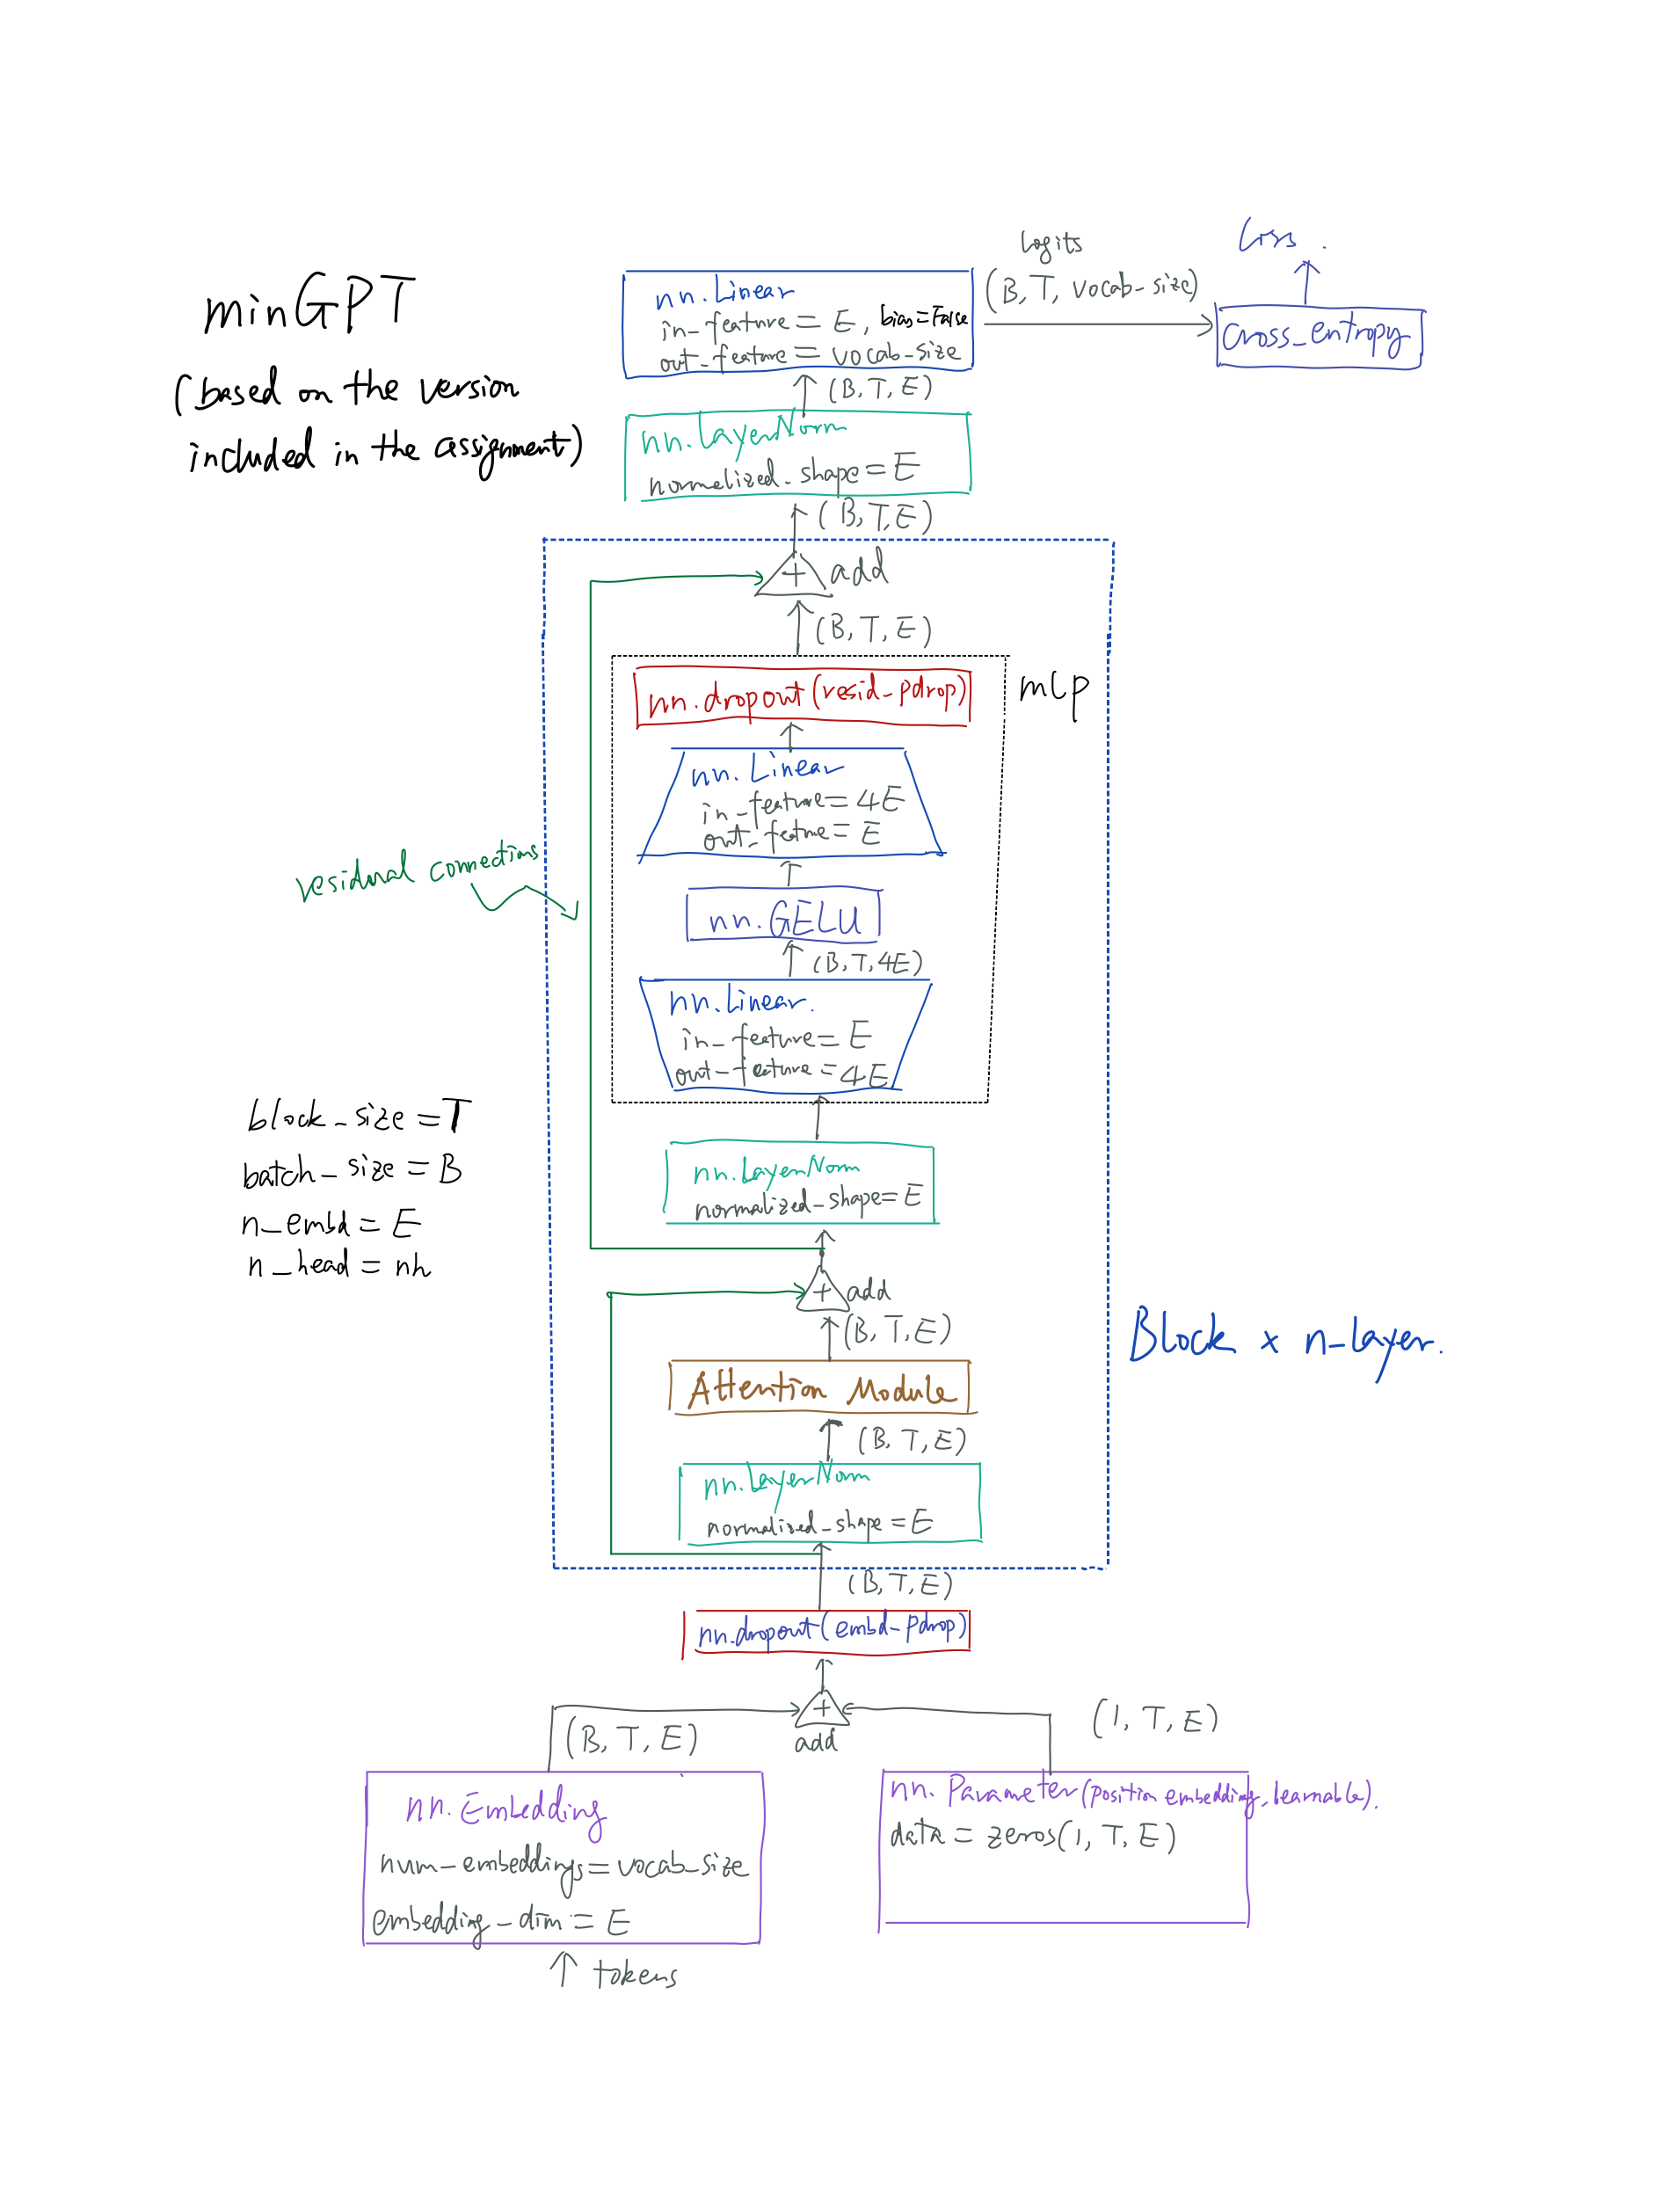 minGPT
(based on the version
included in the assignment)
logits
(B, T, vocab-size)
Loss.
cross_entropy
nn.Linear
in_feature = E, bias=False
out_feature = vocab-size
(B, T, E)
nn.LayerNorm
normalized_shape = E
(B, T, E)
add
+
(B, T, E)
mlp
nn.dropout(resid-pdrop)
nn.Linear
in_feature = 4E
out_feature = E
residual connections
nn.GELU
(B, T, 4E)
nn.Linear.
in_feature = E
out-feature = 4E
block_size = T
batch_size = B
n_embd = E
n_head = nh
nn.LayerNorm
normalized_shape = E
+
add
(B, T, E)
Block x n-layer.
Attention Module
(B, T, E)
nn.LayerNorm
normalized_shape = E
(B, T, E)
nn.dropout(embd-pdrop)
+
add
(B, T, E)
(1, T, E)
nn.Embedding
num-embeddings = vocab-size
embedding-dim = E
nn.Parameter(position embedding, learnable).
data = zeros(1, T, E)
tokens